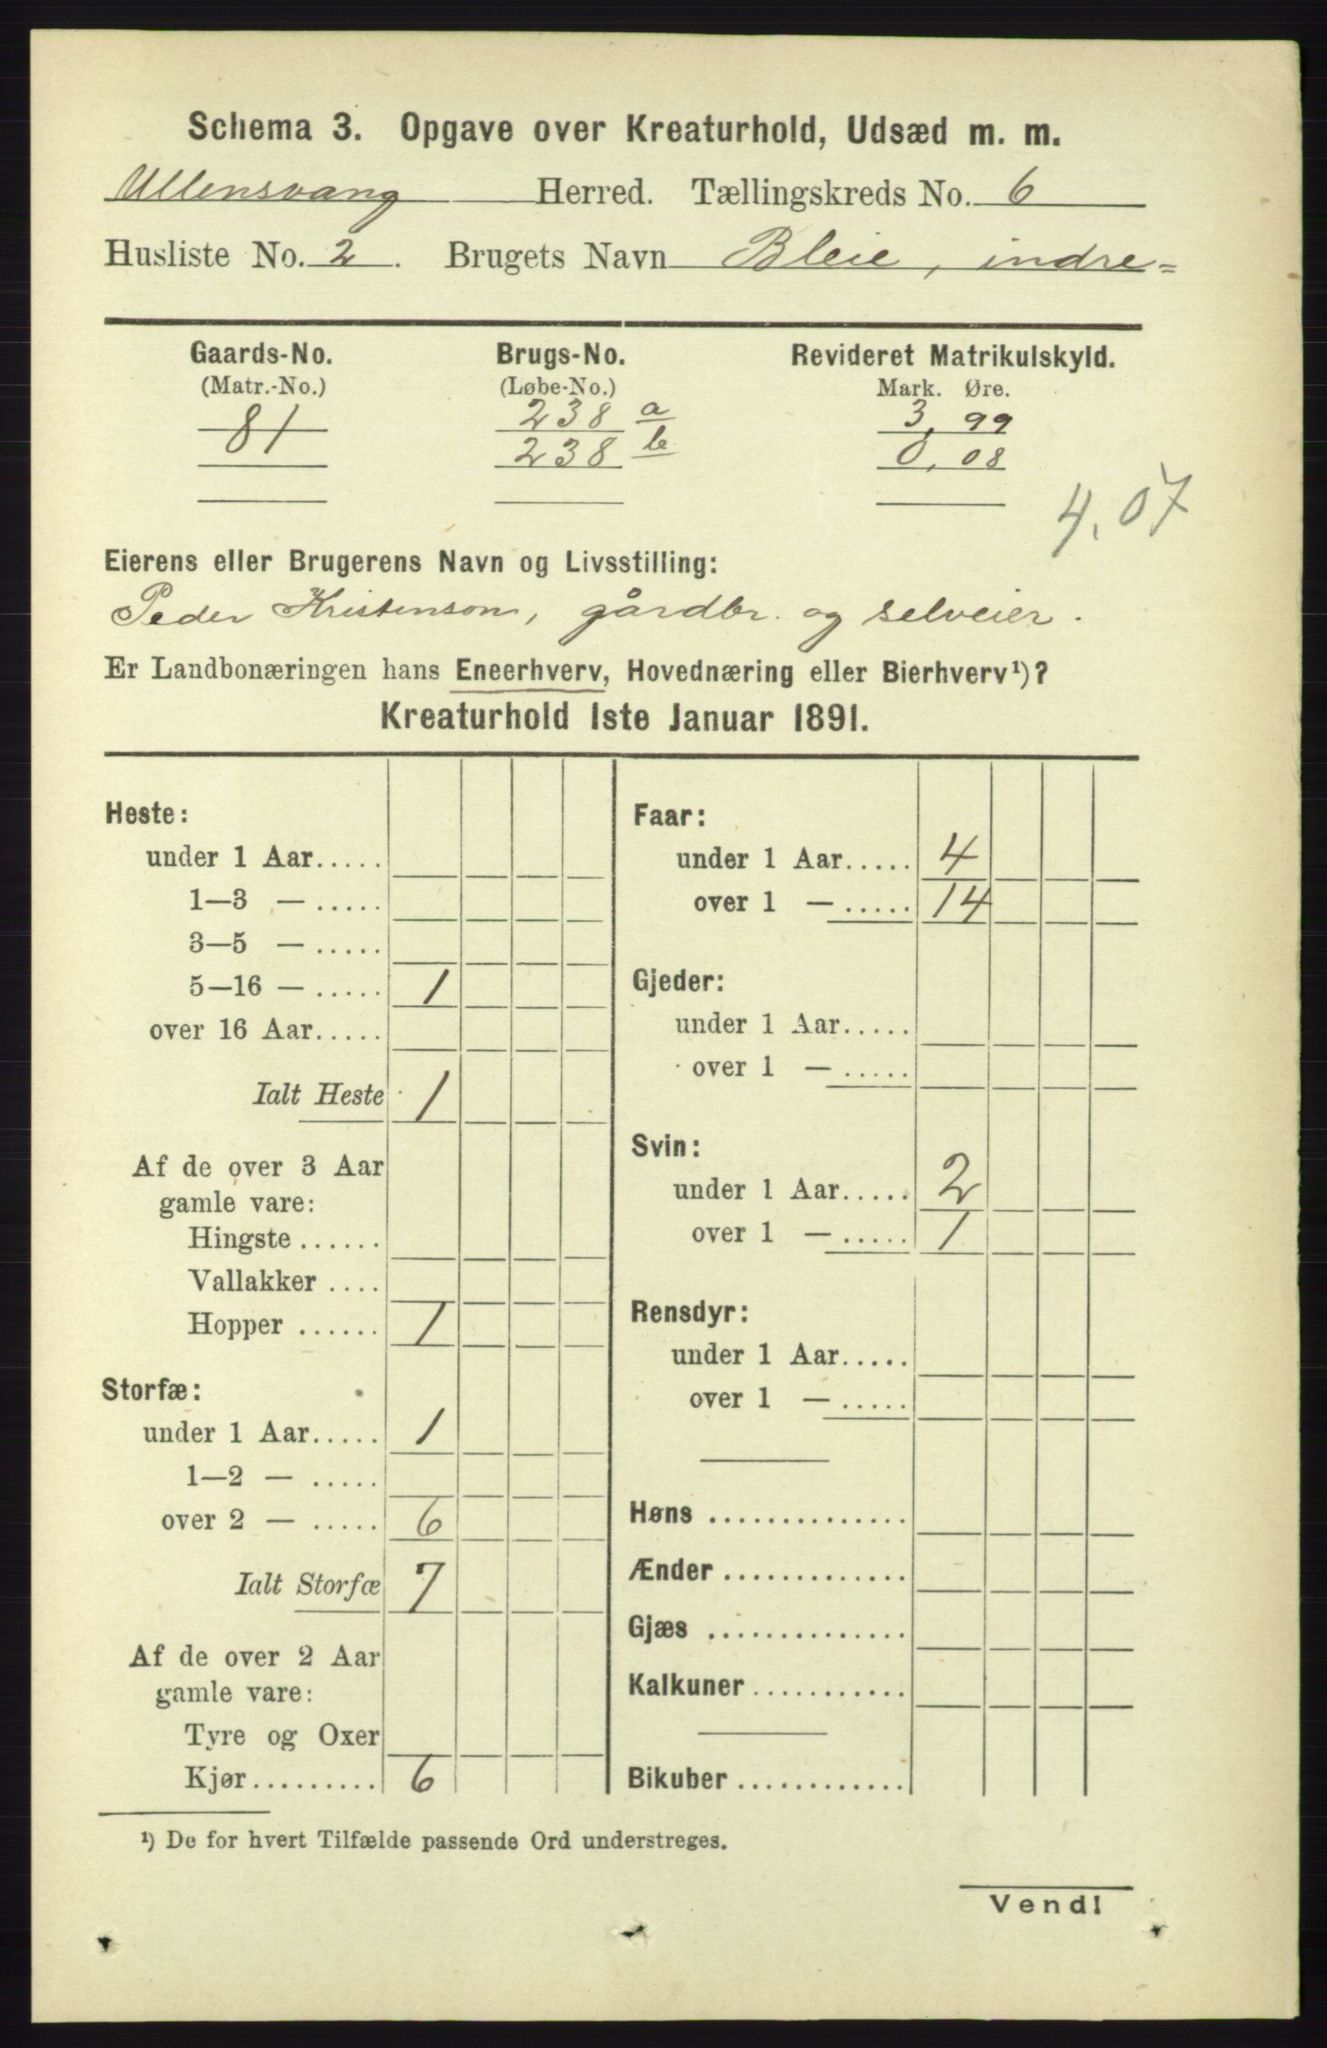 Schema 3. Opgave over Kreaturhold, Udsæd m. m.
Ullensvang Herred. Tællingskreds No. 6
Husliste No. 2. Brugets Navn Bleie, indre=
Gaards-No. Brugs-No. Revideret Matrikulskyld.
(Matr.-No.) (Løbe-No.) Mark. Øre.
81 238 a 3,99
238 b 0,08
4,07
Eierens eller Brugerens Navn og Livsstilling:
Peder Kristenson, gårdbr. og selveier.
Er Landbonæringen hans Eneerhverv, Hovednæring eller Bierhverv¹)?
Kreaturhold 1ste Januar 1891.
Heste:
under 1 Aar.....
1—3 — .....
3—5 — .....
5—16 — ..... 1
over 16 Aar.....
Ialt Heste 1
Af de over 3 Aar
gamle vare:
Hingste ......
Vallakker ....
Hopper ...... 1
Storfæ:
under 1 Aar..... 1
1—2 — .....
over 2 — ..... 6
Ialt Storfæ 7
Af de over 2 Aar
gamle vare:
Tyre og Oxer
Kjør......... 6
Faar:
under 1 Aar..... 4
over 1 — ..... 14
Gjeder:
under 1 Aar.....
over 1 — .....
Svin:
under 1 Aar..... 2
over 1 — ..... 1
Rensdyr:
under 1 Aar.....
over 1 — .....
Høns ..............
Ænder .............
Gjæs ..............
Kalkuner ...........
Bikuber ............
¹) De for hvert Tilfælde passende Ord understreges.
Vend!